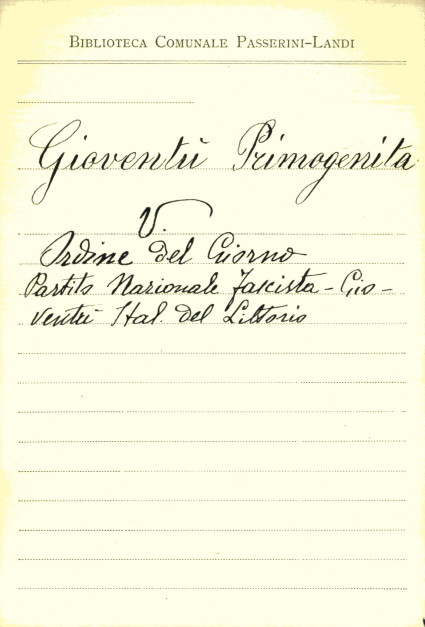 BIBLIOTECA COMUNALE PASSERINI-LANDI
Gioventù Primogenita
V.
Ordine del Giorno
Partito Nazionale Fascista - Gio-
ventù Ital. del Littorio